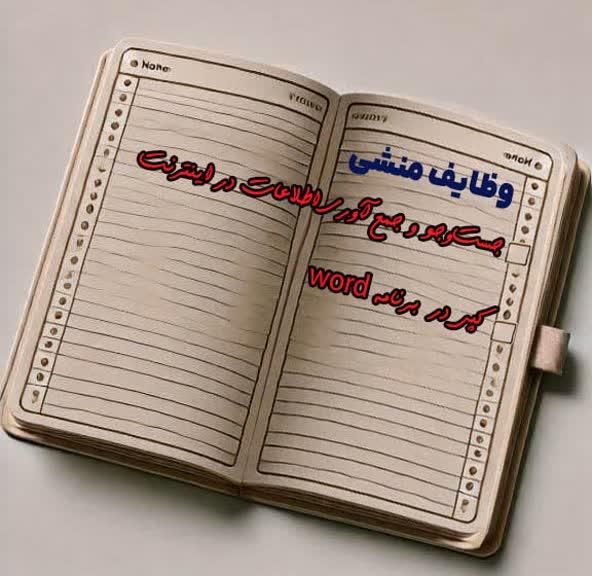 Name
وظایف منشی
جست‌وجو و جمع آوری اطلاعات در اینترنت
کپی در برنامه word